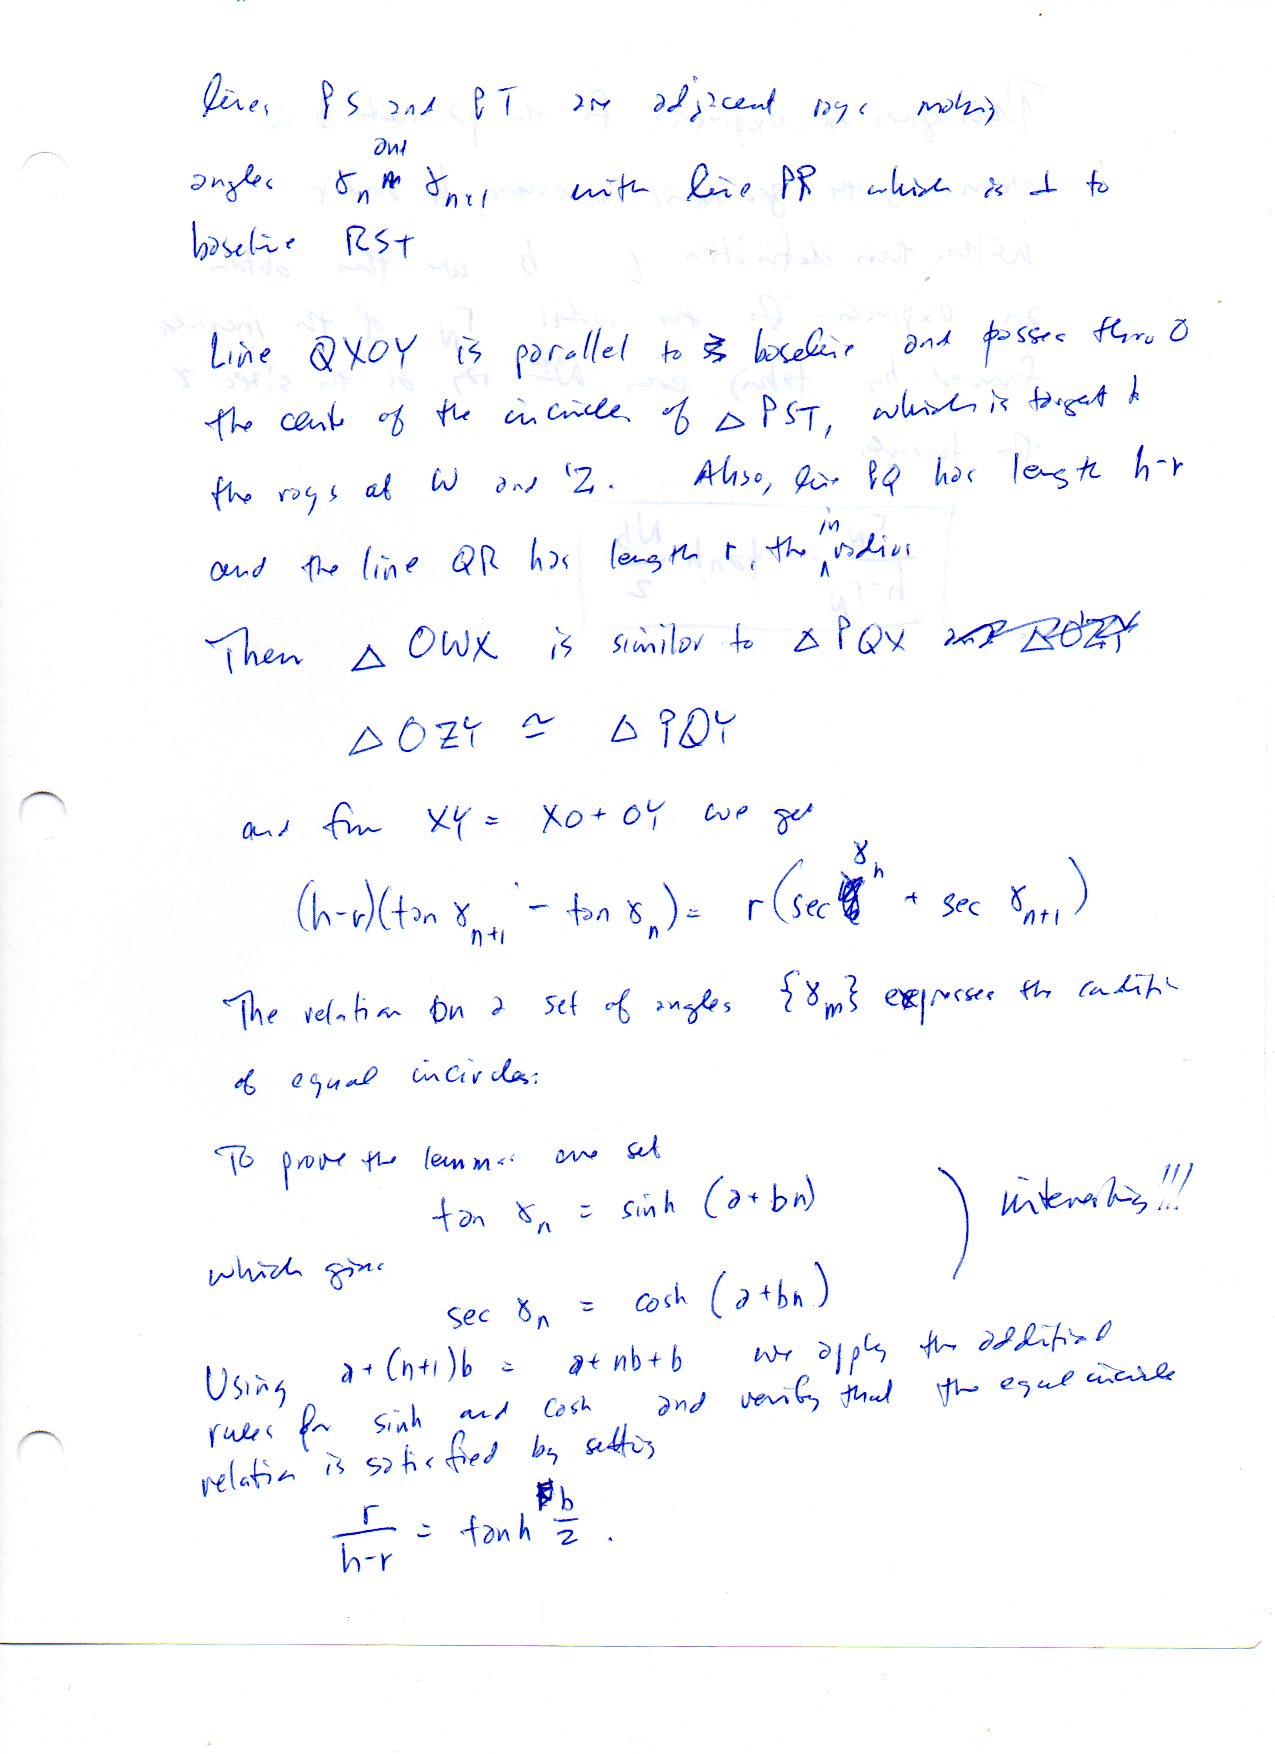 lines PS and PT are adjacent rays making
angles γn and γn+1 with line PR which is ⊥ to
baseline RST
Line QXOY is parallel to baseline and passes thru O
the center of the incircle of △PST, which is tangent to
the rays at W and Z. Also, line PQ has length h-r
and the line QR has length r, the inradius
Then △ OWX is similar to △ PQX and △OZY
△OZY ≃ △PQY
and from XY = XO + OY we get
(h-r)(tan γn+1 - tan γn) = r(sec γn + sec γn+1)
The relation on a set of angles {γm} expresses the condition
of equal incircles:
To prove the lemma one set
tan γn = sinh (a+bn) ) interesting!!!
which gives
sec γn = cosh (a+bn)
Using a+(n+1)b = a+nb+b we apply the additional
rules for sinh and cosh and verify that the equal incircle
relation is satisfied by setting
r/(h-r) = tanh b/2 .